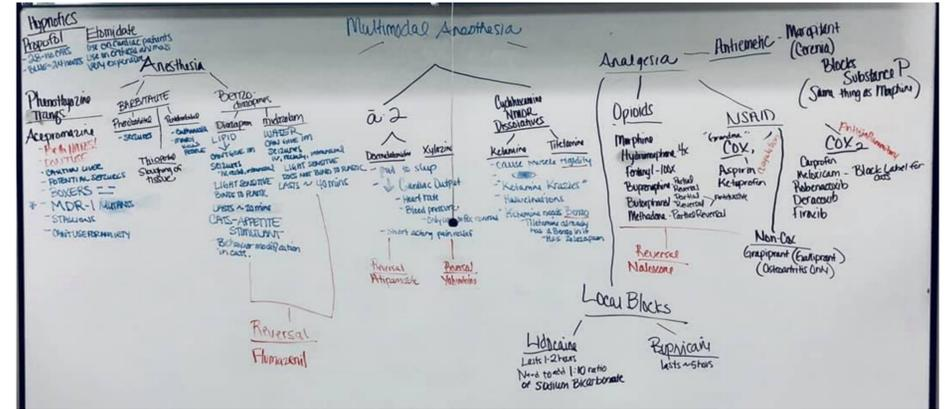 Multimodal Anesthesia
Hypnotics
Propofol
- 28
Etomidate
Use on cardiac patients
very expensive
Anesthesia
Phenothyazine
Tranqs
Acepromazine
- POTENTIAL SEIZURES
- BOXERS
* MDR-1 Mutants
- STALLIONS
BARBITUATE
Phenobarbital
- SEIZURES
Pentobarbital
Thiopental
Sloughing of
tissue
Benzo-
diazapines
Diazapam
LIPID
SEIZURES
LIGHT SENSITIVE
BINDS TO PLASTIC
LASTS ~ 20 mins
CATS - APPETITE
STIMULANT
Behavior modification
in cats.
midazolam
WATER
CAN GIVE IM
Seizures
LIGHT SENSITIVE
DOES NOT BIND TO PLASTIC
LASTS ~ 40 mins
Reversal
Flumazenil
a-2
Dexmedetomidine
Xylazine
- Put to sleep
- ↓ Cardiac Output
- Heart rate
- Blood pressure
- Short acting pain relief
Reversal
Atipamazole
Reversal
Yohimbine
Cyclohexamine
NMDR
Dissolatives
Ketamine
Tiletamine
- Cause muscle rigidity
"Ketamine Krazies"
- Halucinations
- Ketamine needs Benzo
- Tiletamine already
has a Benzo in it
- Has Zolazapam
Analgesia
Opioids
Morphine
Hydromorphone 4x
Fentanyl - 100x
Buprenorphine Partial
Reversal
Butorphanol Partial
Reversal / Antitussive
Methadone - Partial Reversal
Reversal
Naloxone
NSAID
"Grandma"
COX1
Aspirin
Ketoprofen
COX2
Antiinflammatory
Carprofen
Meloxicam - Black Label for
cats
Robenacoxib
Deracoxib
Firocib
Non-Cox
Grapiprant (Galliprant)
(Osteoartritis Only)
Antiemetic - Maropitent
(Cerenia)
Blocks
Substance P
(Same thing as Morphine)
Local Blocks
Lidocaine
Lasts 1-2 hours
Need to add 1:10 ratio
of Sodium Bicarbonate
Bupivicaine
Lasts ~5 hours